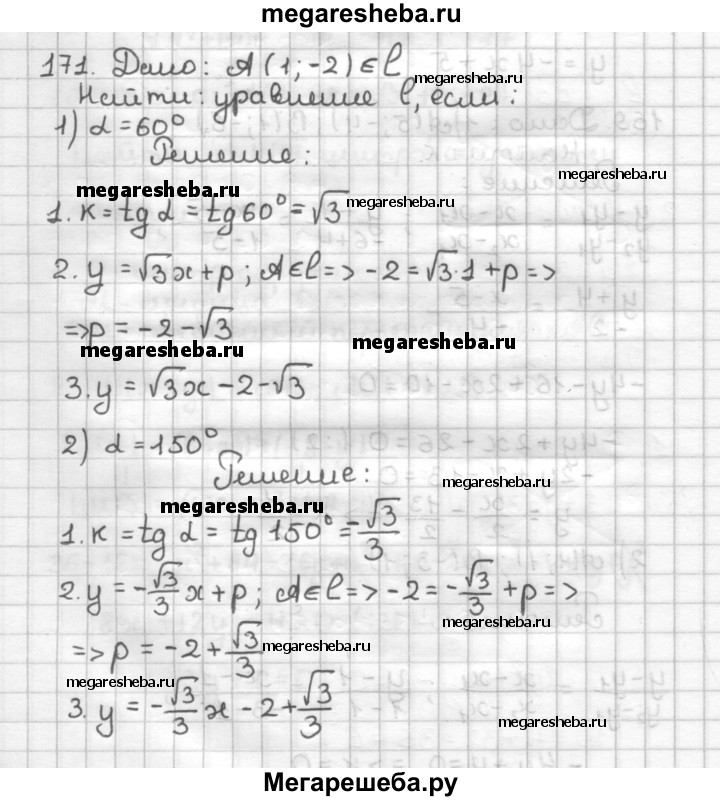 megaresheba.ru
171. Дано: A(1; -2) ∈ l
megaresheba.ru
Найти: уравнение l, если:
1) α = 60°
Решение:
megaresheba.ru
megaresheba.ru
1. к = tg α = tg 60° = √3
2. y = √3x + p ; A ∈ l => -2 = √3·1 + p =>
=> p = -2 - √3
megaresheba.ru
megaresheba.ru
3. y = √3x - 2 - √3
2) α = 150°
Решение:
megaresheba.ru
megaresheba.ru
1. к = tg α = tg 150° = -√3/3
2. y = -√3/3 x + p ; A ∈ l => -2 = -√3/3 + p =>
megaresheba.ru
=> p = -2 + √3/3
megaresheba.ru
megaresheba.ru
3. y = -√3/3 x - 2 + √3/3
megaresheba.ru
Мегарешеба.ру